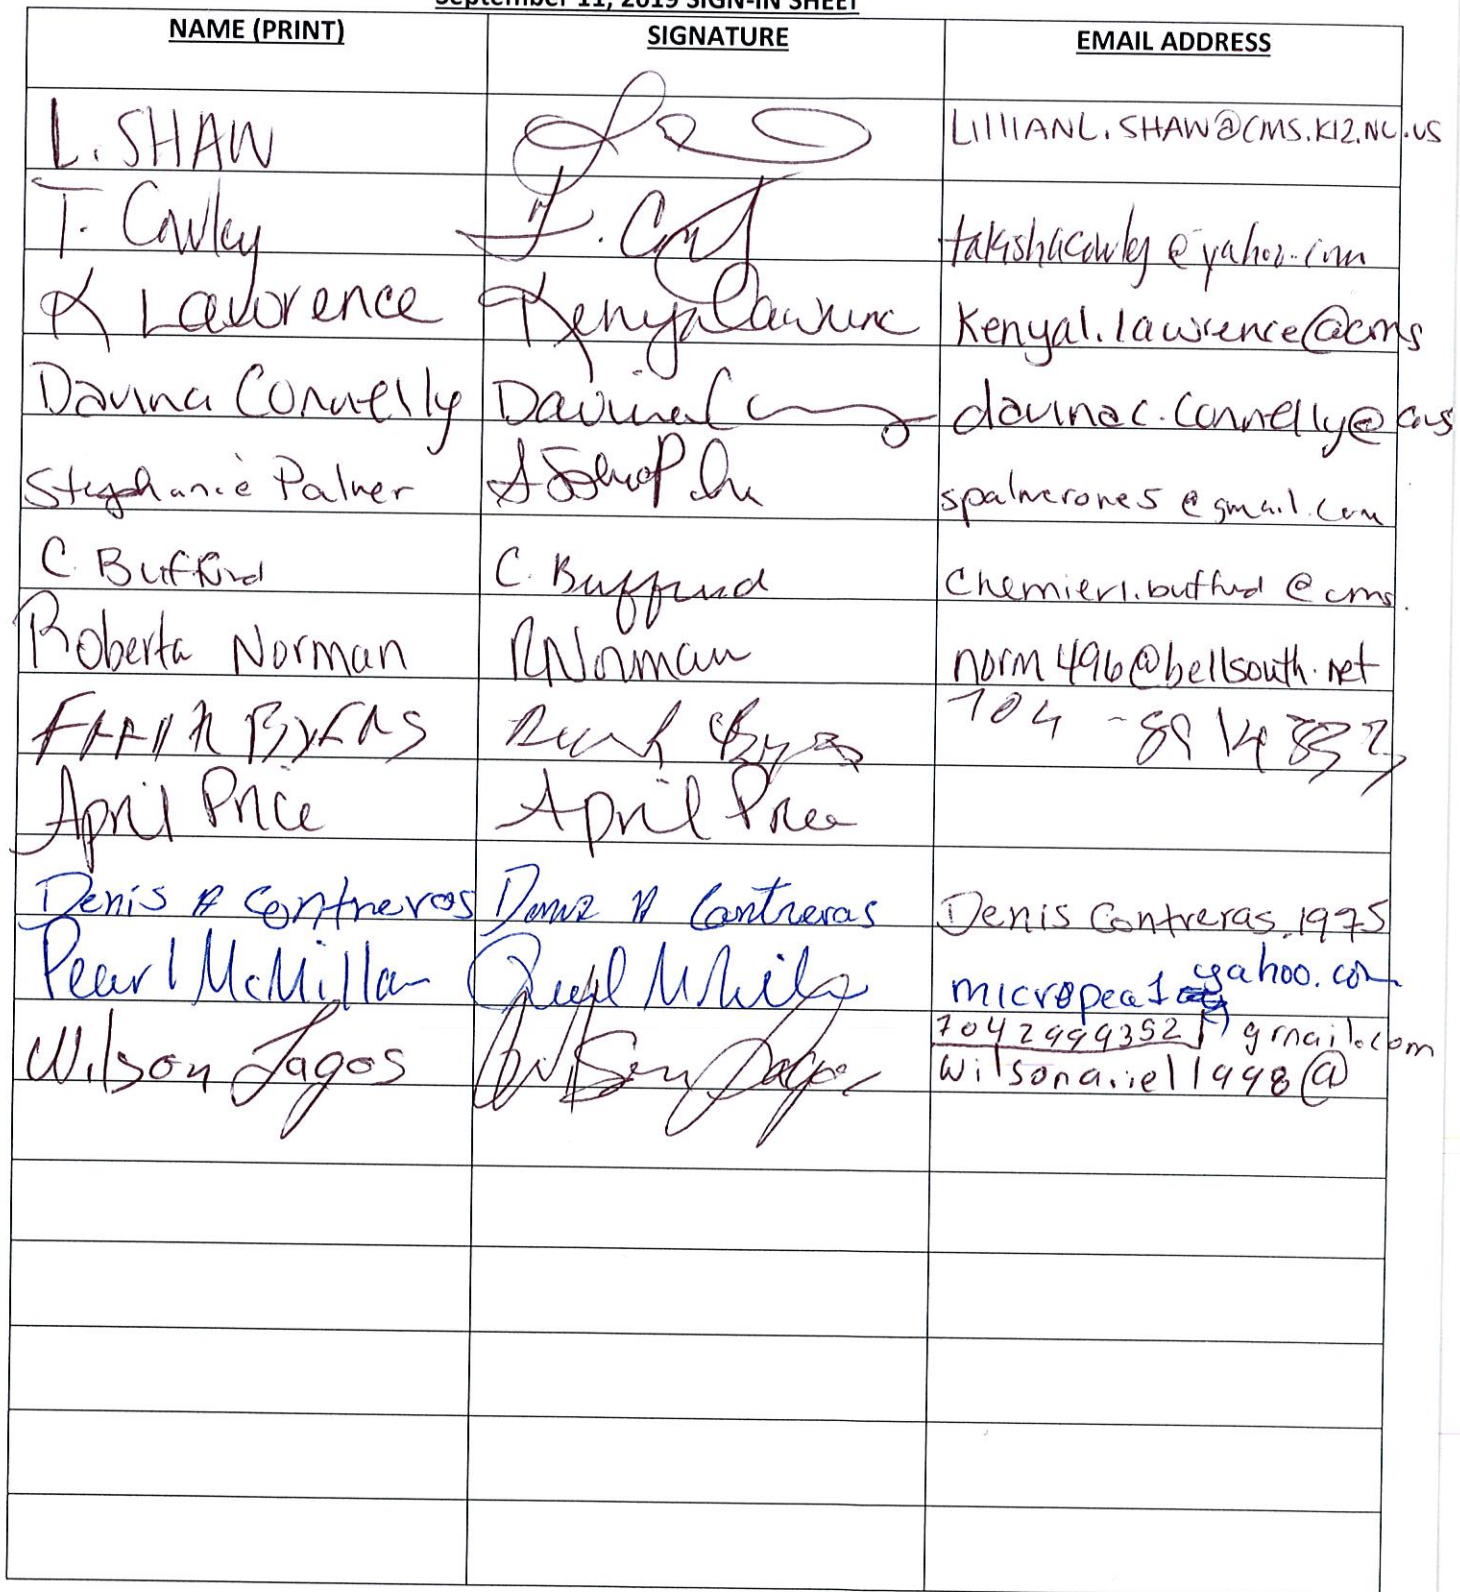 September 11, 2019 SIGN-IN SHEET
NAME (PRINT) SIGNATURE EMAIL ADDRESS
L. SHAW LILLIANL.SHAW@CMS.K12.NC.US
T. Cawley T. takishacawley@yahoo.com
K Lawrence Kenya Lawrence Kenyal.lawrence@cms
Davina Connelly Davina davinac.connelly@cms
Stephanie Palmer spalmerone5@gmail.com
C. Bufford C. Bufford Chemier1.bufford@cms.
Roberta Norman RNorman norm496@bellsouth.net
Byers 704 -
April Price April Price
Denis A Contreros Denis A Contreras Denis Contreras.1975
Pearl McMillan Pearl micropea1 yahoo.com
7042999352 gmail.com
Wilson Lagos Wilson Lagos wilsonariel1998@